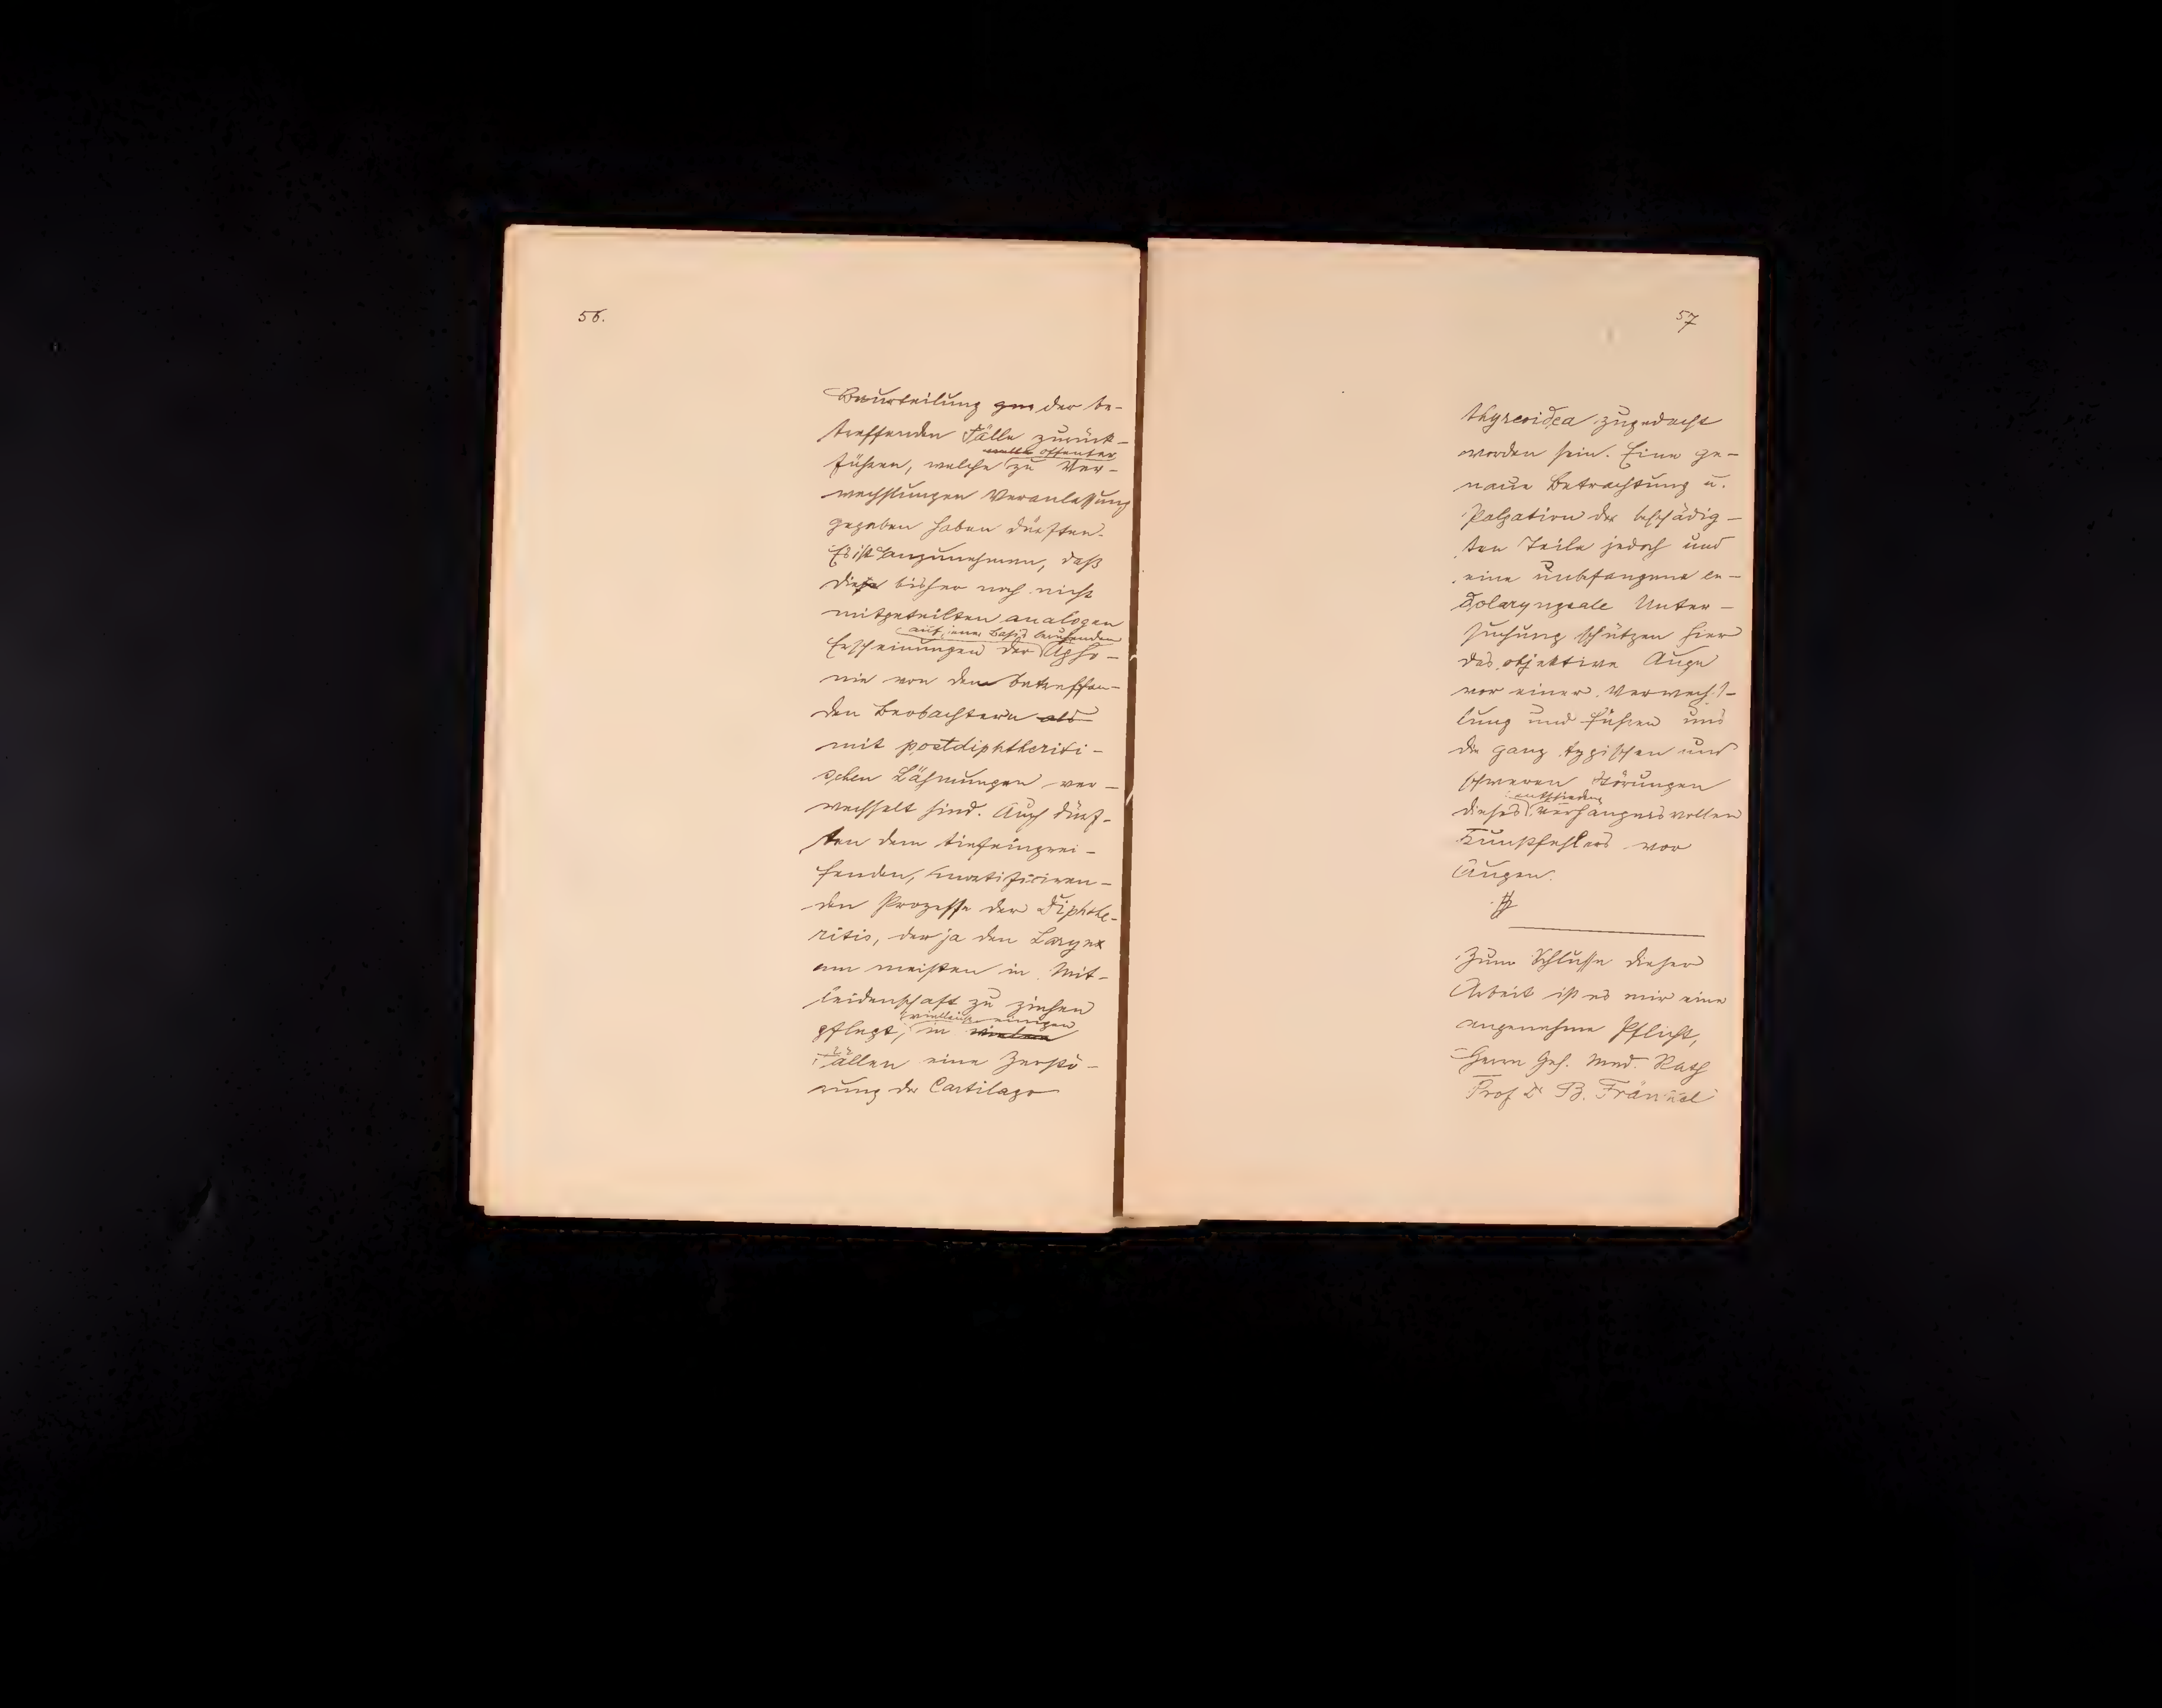 56.
Beurteilung der be-
treffenden Fälle zurück-
offenbar
führen, welche zu Ver-
wechslungen Veranlassung
gegeben haben dürften.
Es ist anzunehmen, daß
diese bisher noch nicht
mitgeteilten analogen
auf jener Basis beruhenden
Erscheinungen der Apho-
nie von den betreffen-
den Beobachtern als
mit postdiphtheriti-
schen Lähmungen ver-
wechselt sind. Auch dürf-
ten dem tiefeingrei-
fenden, mortifiziren-
den Prozesse der Diphthe-
ritis, der ja den Larynx
am meisten in Mit-
leidenschaft zu ziehen
vielleicht einigen
pflegt, in vielen
Fällen eine Zerstö-
rung der Cartilago
57
thyreoidea zugedacht
worden sein. Eine ge-
naue Betrachtung u.
Palpation der beschädig-
ten Teile jedoch und
eine unbefangene en-
dolaryngeale Unter-
suchung schützen hier
das objektive Auge
vor einer Verwechs-
lung und führen uns
die ganz typischen und
schweren Störungen
dieses verhängnisvollen
Kunstfehlers vor
Augen.
Zum Schlusse dieser
Arbeit ist es mir eine
angenehme Pflicht,
Herrn Geh. Med. Rath
Prof Dr B. Fränkel